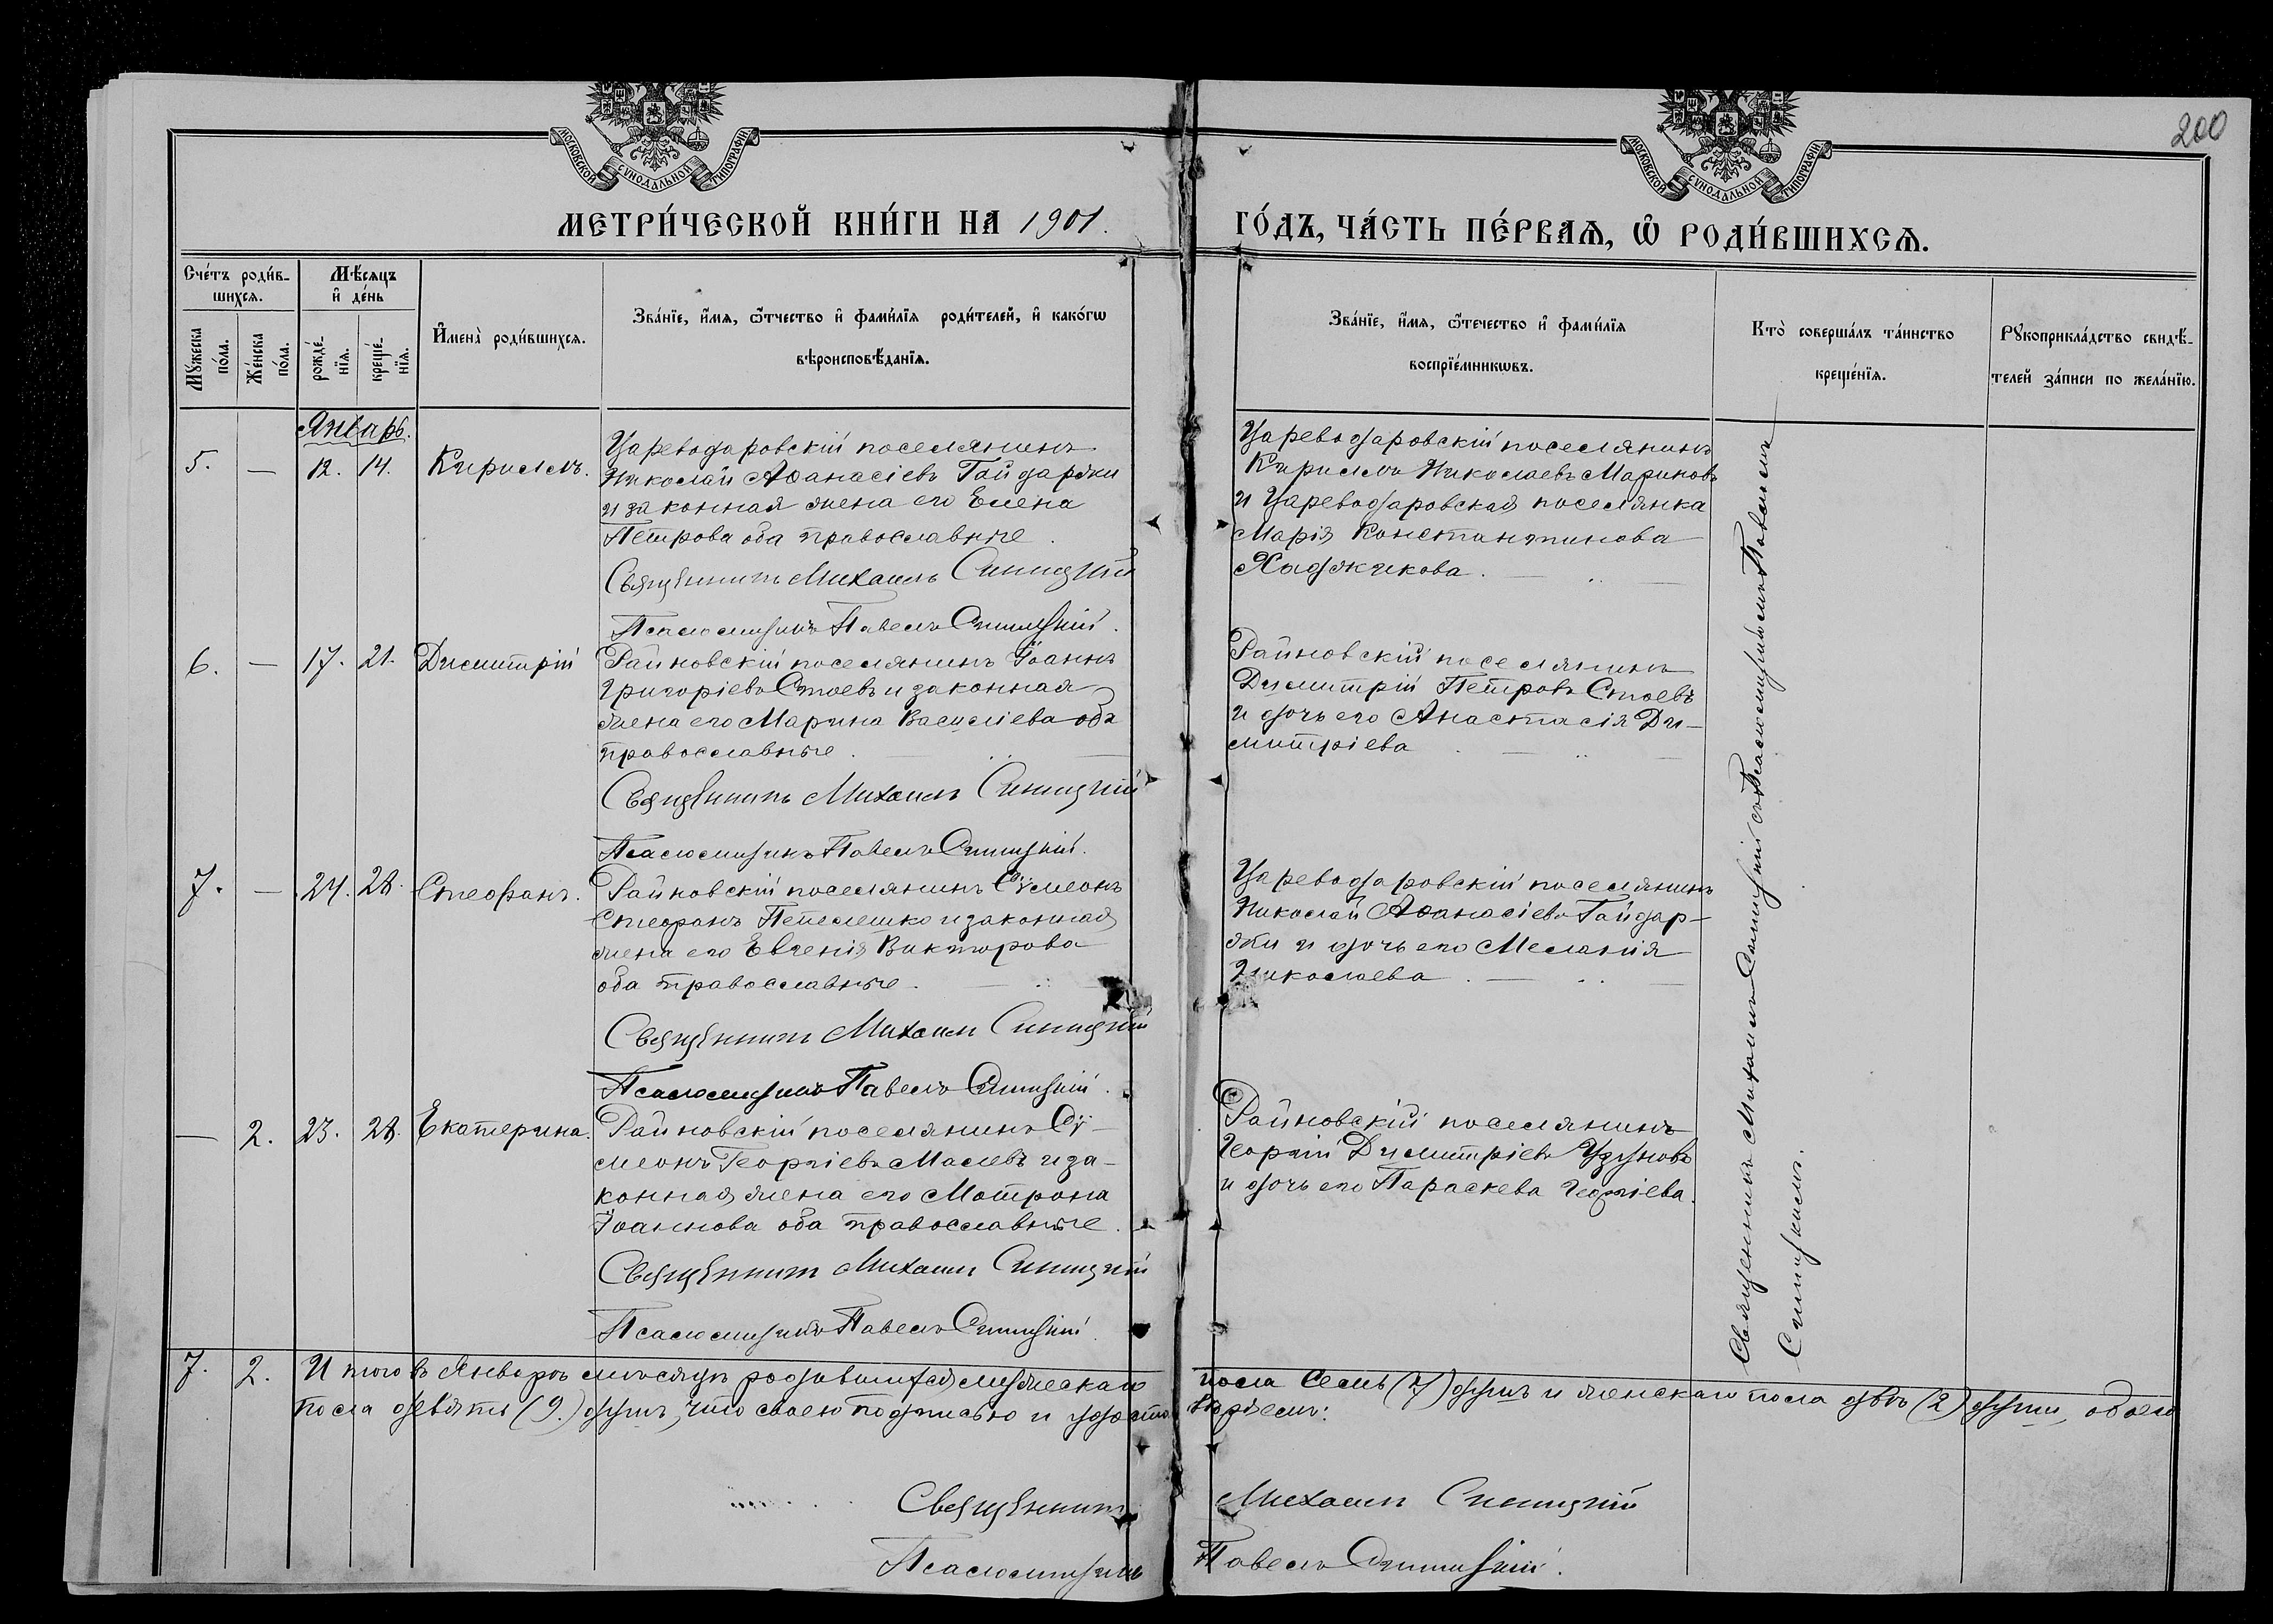 200
МОСКОВСКОЙ СѴНОДАЛЬНОЙ ТИПОГРАФІИ
МОСКОВСКОЙ СѴНОДАЛЬНОЙ ТИПОГРАФІИ
МЕТРИ́ЧЕСКОЙ КНИ́ГИ НА 1901.
ГО́ДЪ, ЧА́СТЬ ПЕ́РВАѦ, Ѽ РОДИ́ВШИХСѦ.
Сче́тъ роди́в-
шихсѧ.
Мꙋжеска
по́ла.
Же́нска
по́ла.
Мѣ́сѧцъ
и҆ де́нь
рожде́-
нїѧ.
креще́-
нїѧ.
И҆мена̀ роди́вшихсѧ.
Зва́нїе, и҆́мѧ, ѻ҆́тчество и҆ фами́лїѧ роди́телей, и҆ како́гѡ
вѣроисповѣ́данїѧ.
Зва́нїе, и҆́мѧ, ѻ҆́течество и҆ фами́лїѧ
воспрїе́мникѡвъ.
Кто̀ соверша́лъ та́инство
креще́нїѧ.
Рꙋкоприкла́дство свидѣ́-
телей за́писи по жела́нїю.
Январь.
5. — 12. 14. Кириллъ.
Цареводаровскій поселянинъ
Николай Аѳанасіевъ Гайдаржи
и законная жена его Елена
Петрова оба православные.
Священникъ Михаилъ Синицкій
Псаломщикъ Павелъ Синицкій.
Цареводаровскій поселянинъ
Кириллъ Николаевъ Мариновъ
и Цареводаровская поселянка
Марія Константинова
Хаджикова.
6. — 17. 21. Димитрій
Райновскій поселянинъ Іоаннъ
Григоріевъ Стоевъ и законная
жена его Марина Василіева оба
православные.
Священникъ Михаилъ Синицкій
Псаломщикъ Павелъ Синицкій.
Райновскій поселянинъ
Димитрій Петровъ Стоевъ
и дочь его Анастасія Ди-
митріева
7. — 24. 28. Стефанъ.
Райновскій поселянинъ Сѵмеонъ
Стефанъ Пепелешко и законная
жена его Евгенія Викторова
оба православные.
Священникъ Михаилъ Синицкій
Псаломщикъ Павелъ Синицкій.
Цареводаровскій поселянинъ
Николай Аѳанасіевъ Гайдар-
жи и дочь его Меланія
Николаева.
— 2. 23. 28. Екатерина.
Райновскій поселянинъ Сѵ-
меонъ Георгіевъ Малевъ и за-
конная жена его Матрона
Іоаннова оба православные.
Священникъ Михаилъ Синицкій
Псаломщикъ Павелъ Синицкій.
Райновскій поселянинъ
Георгій Димитріевъ Узуновъ
и дочь его Параскева Георгіева.
Священникъ Михаилъ Синицкій съ Псаломщикомъ Павломъ
Синицкимъ.
7. 2. Итого въ Январѣ мѣсяцѣ родившихся мужескаго пола семь (7) душъ и женскаго пола двѣ (2) души, обоего
пола девять (9.) душъ, что своею подписью и удостовѣряемъ:
Священникъ Михаилъ Синицкій
Псаломщикъ Павелъ Синицкій.